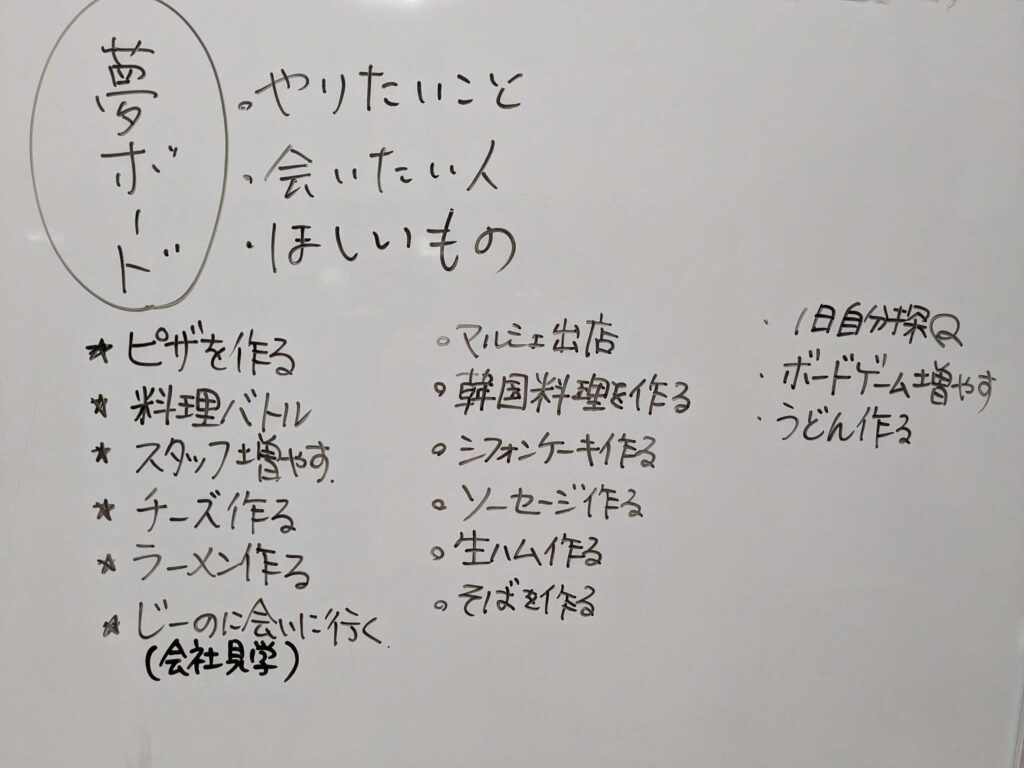 夢ボード
。やりたいこと
・会いたい人
・ほしいもの
★ ピザを作る
★ 料理バトル
★ スタッフ増やす.
★ チーズ作る
★ ラーメン作る
★ じーのに会いに行く
(会社見学)
○ マルシェ出店
○ 韓国料理を作る
○ シフォンケーキ作る
○ ソーセージ作る
○ 生ハム作る
○ そばを作る
・1日自分探Q
・ボードゲーム増やす
・うどん作る